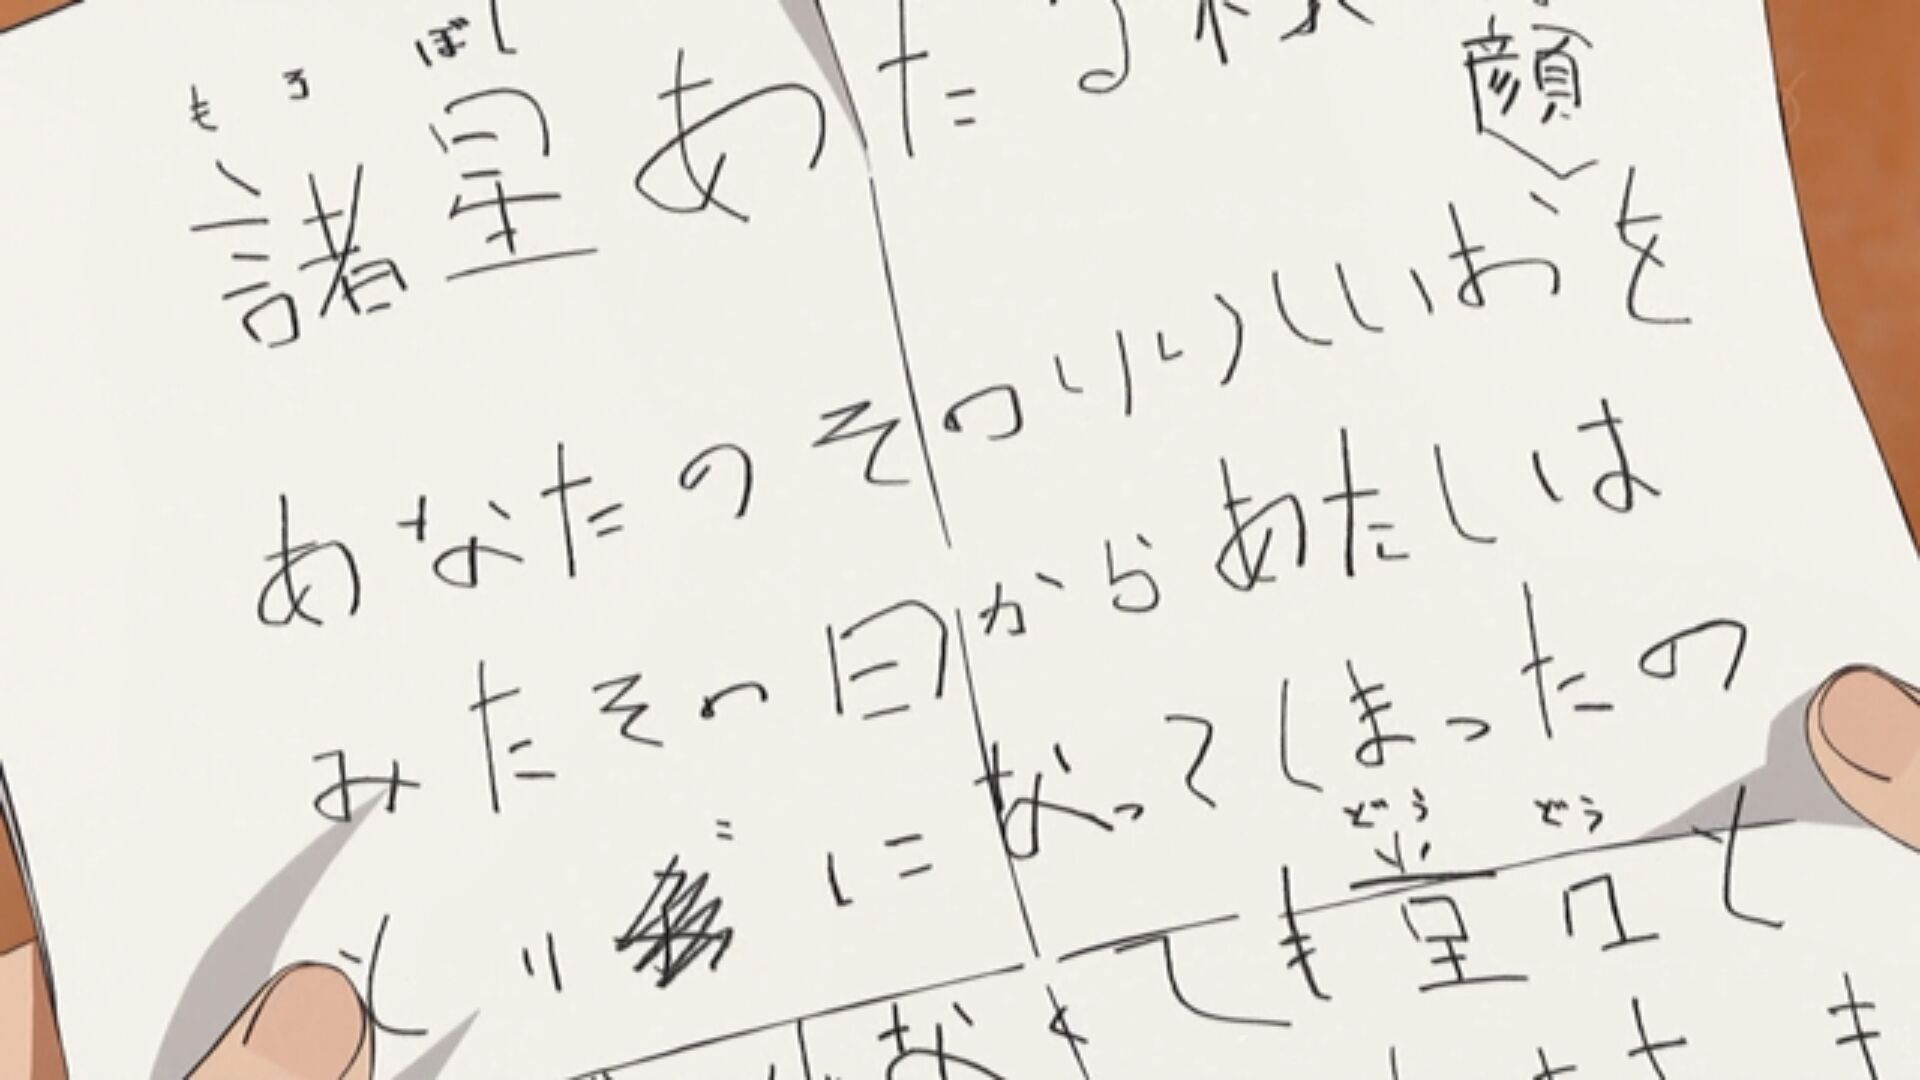 もろぼし
諸星あたる様
顔
あなたのそのりりしいおを
みたその日からあたしは
とりこになってしまったの
どうどう
なくても堂々と